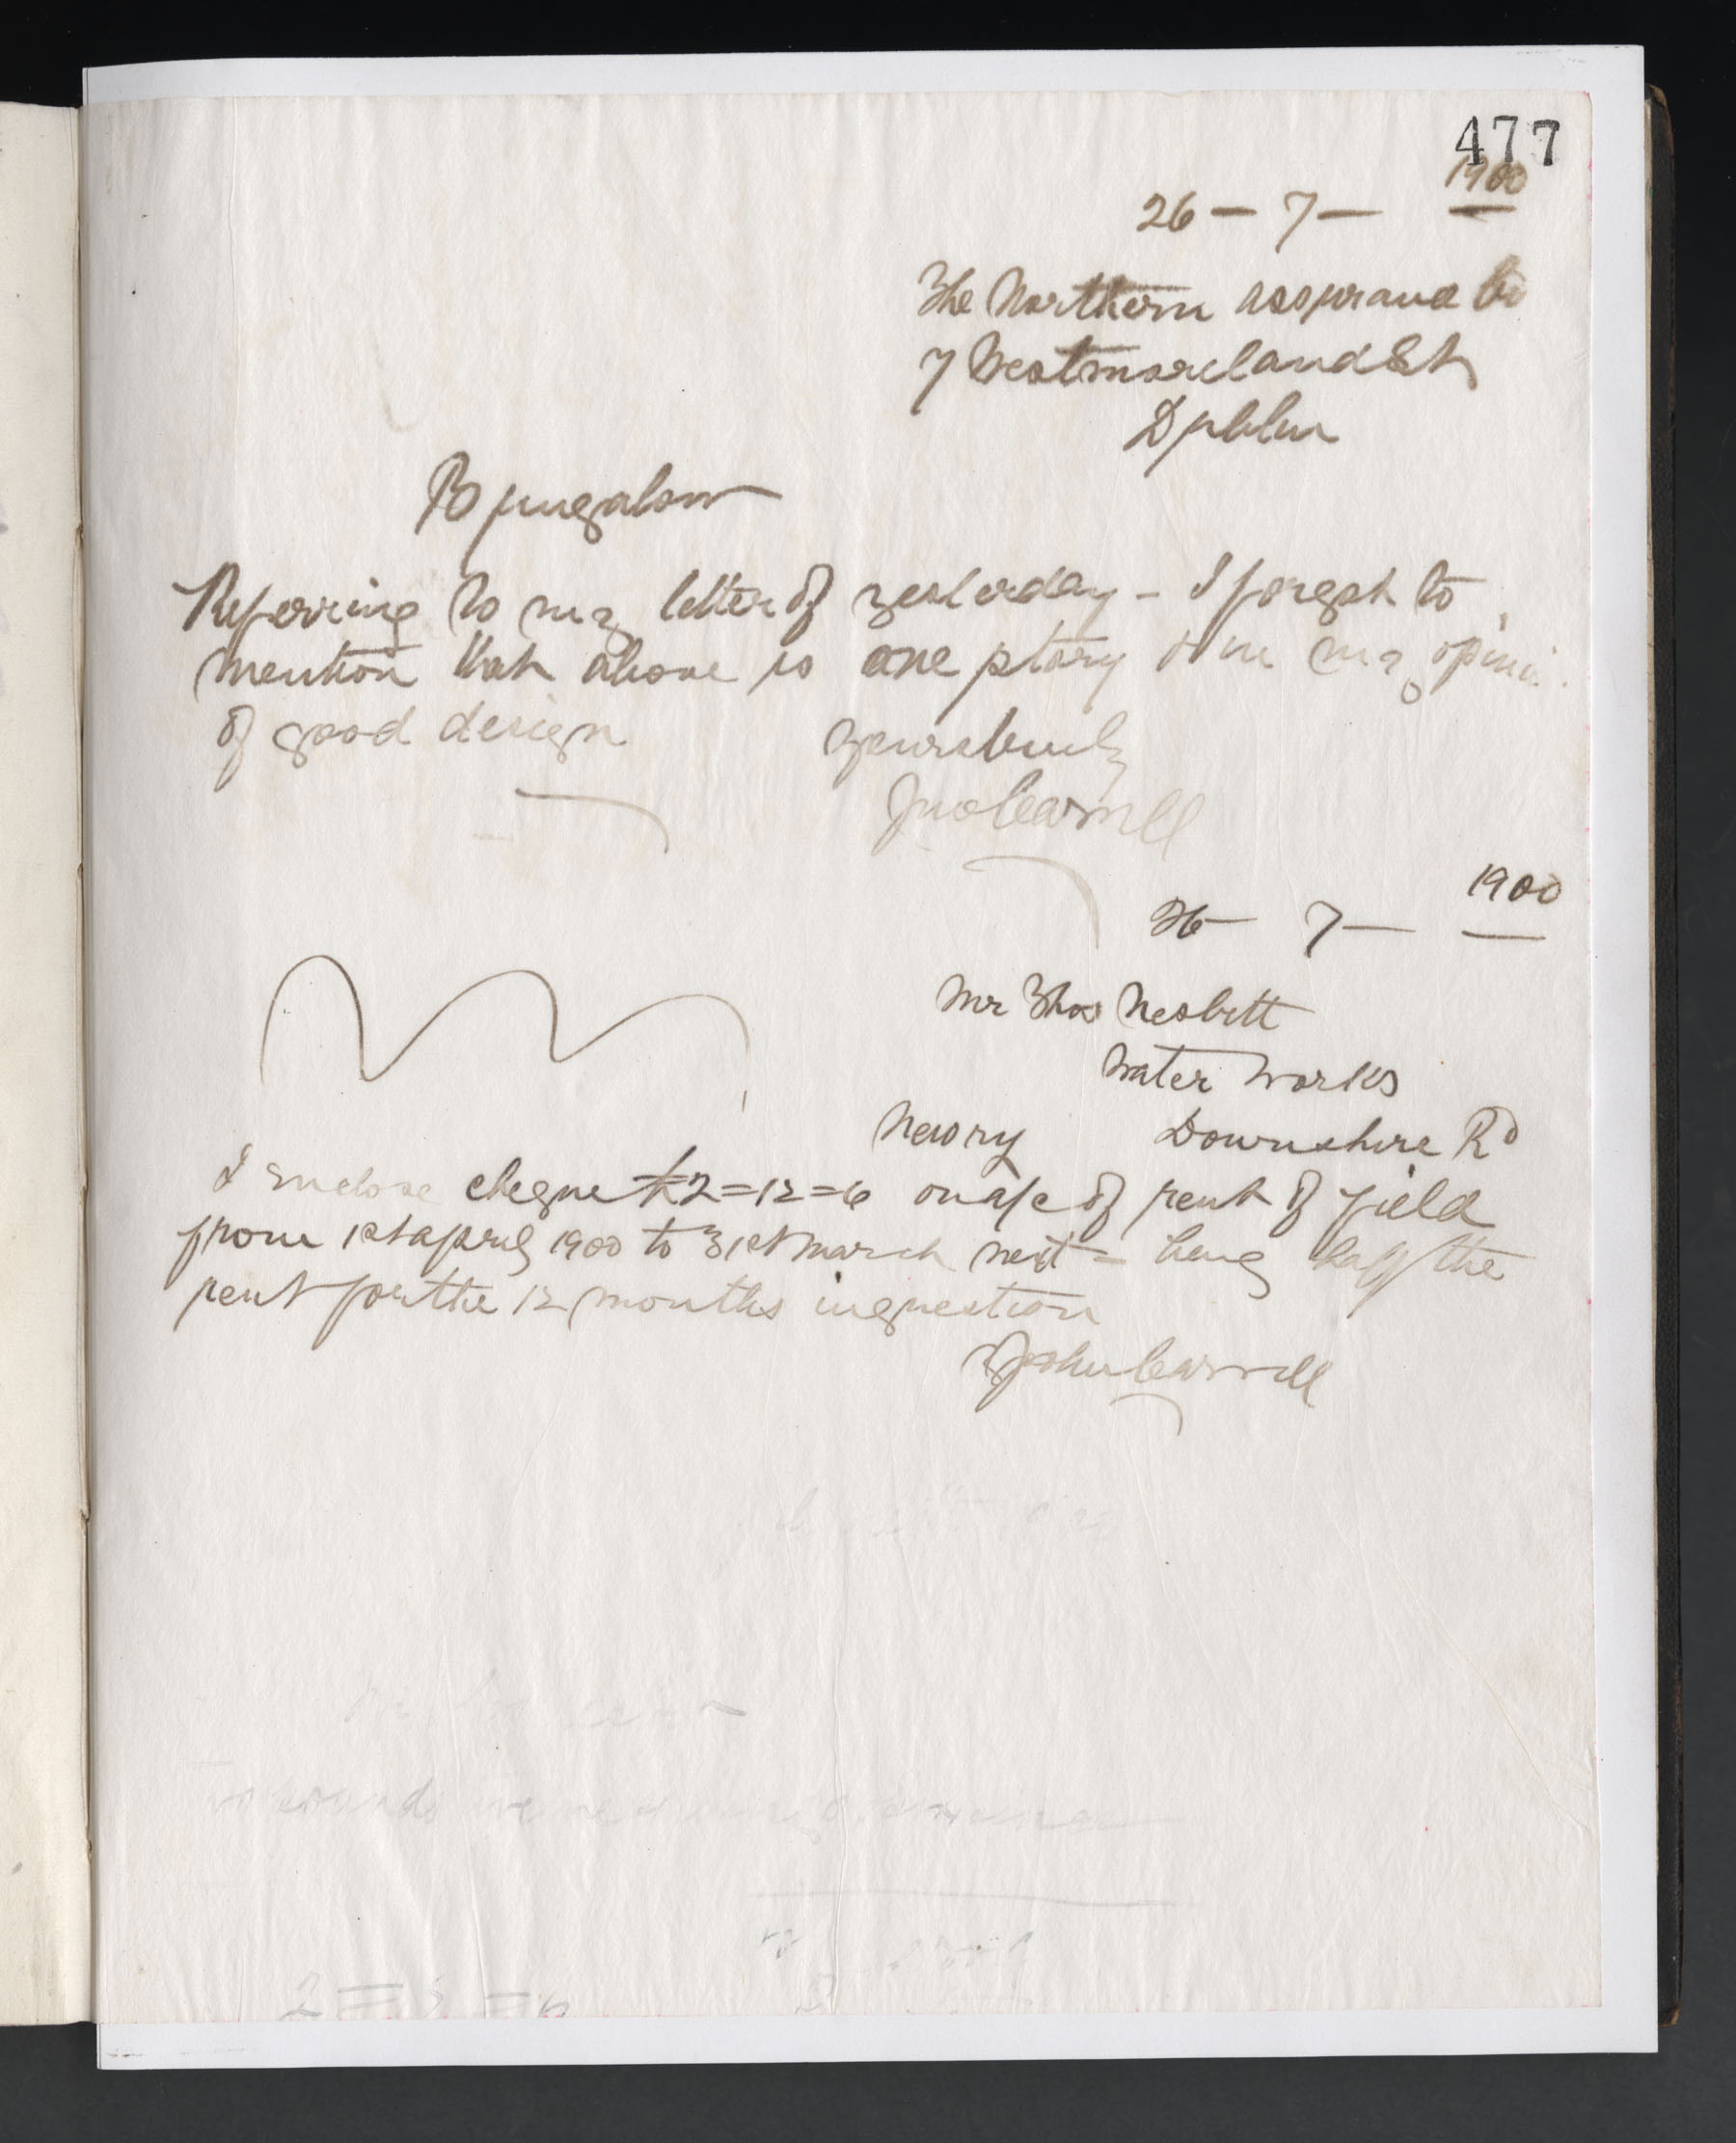 477
1900
26 - 7 -
The Northern Assurance Co
7 Westmoreland St
Dublin
Bungalow
Referring to my letter of yesterday - I forgot to
mention that above is one story & in my opini
of good design
Yours truly
Jno Carroll
1900
26 - 7 -
Mr Thos Nesbitt
Water Works
Newry Downshire Rd
I enclose cheque £2=12=6 on a/c of rent of field
from 1st April 1900 to 31st March next = being half the
rent for the 12 months in question
John Carroll